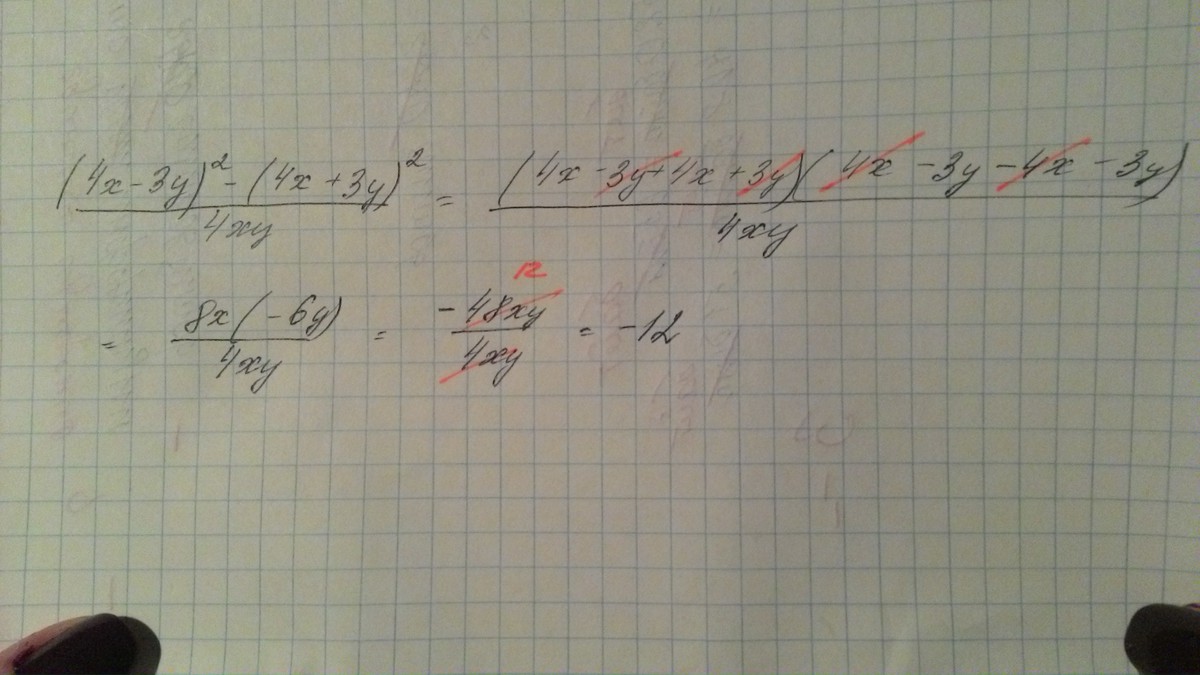 (4x - 3y)² - (4x + 3y)² / 4xy = (4x - 3y + 4x + 3y)(4x - 3y - 4x - 3y) / 4xy
= 8x(-6y) / 4xy = -48xy / 4xy = -12
12